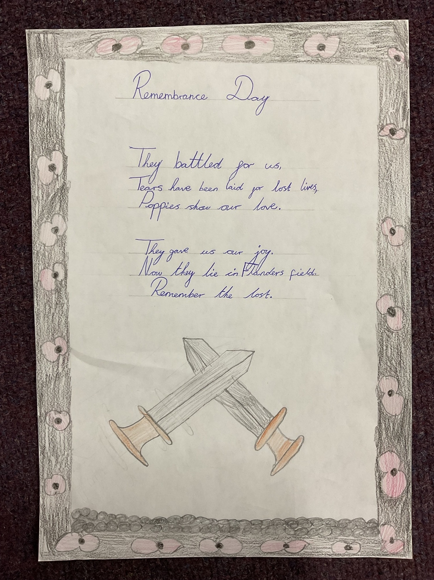 Remembrance Day
They battled for us,
Tears have been laid for lost lives,
Poppies show our love.
They gave us our joy.
Now they lie in Flanders fields.
Remember the lost.